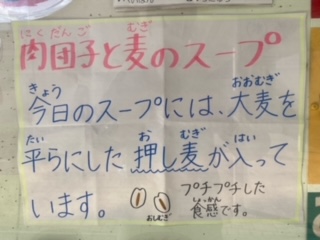 にくだんご むぎ
肉団子と麦のスープ
きょう おおむぎ
今日のスープには、大麦を
たい お むぎ はい
平らにした押し麦が入って
います。
おしむぎ
プチプチした
しょっかん
食感です。